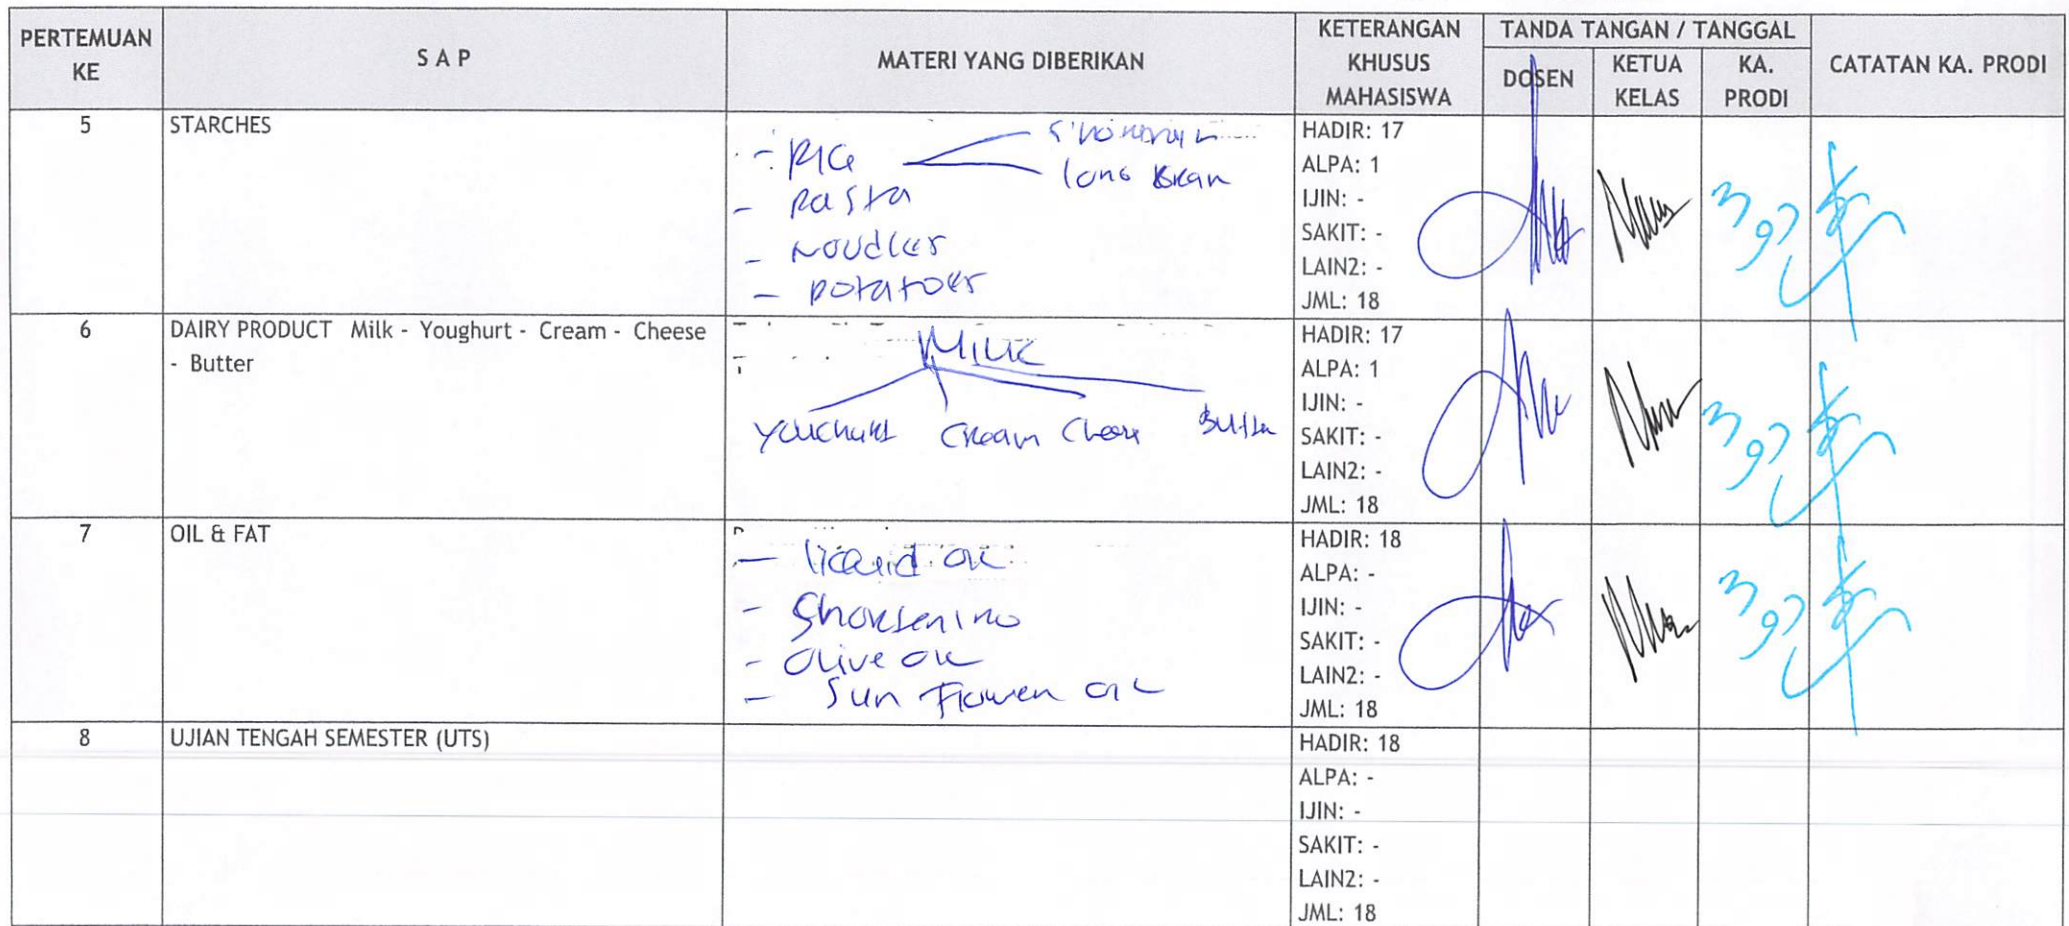 PERTEMUAN KE
S A P
MATERI YANG DIBERIKAN
KETERANGAN KHUSUS MAHASISWA
TANDA TANGAN / TANGGAL
DOSEN
KETUA KELAS
KA. PRODI
CATATAN KA. PRODI
5
STARCHES
- Rice
long
- Pasta
- Noudles
- Potatoes
HADIR: 17
ALPA: 1
IJIN: -
SAKIT: -
LAIN2: -
JML: 18
6
DAIRY PRODUCT Milk - Youghurt - Cream - Cheese
- Butter
Milk
Cream Cheese Butter
HADIR: 17
ALPA: 1
IJIN: -
SAKIT: -
LAIN2: -
JML: 18
7
OIL & FAT
- liquid oil
- Olive oil
- Sun Flower oil
HADIR: 18
ALPA: -
IJIN: -
SAKIT: -
LAIN2: -
JML: 18
8
UJIAN TENGAH SEMESTER (UTS)
HADIR: 18
ALPA: -
IJIN: -
SAKIT: -
LAIN2: -
JML: 18